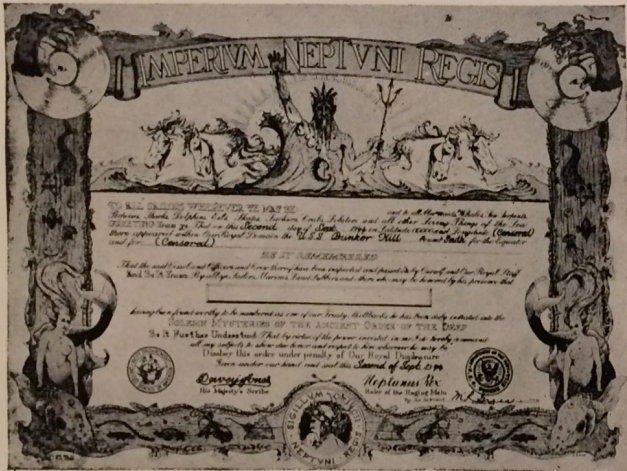 IMPERIVM NEPTVNI REGIS
TO ALL SAILORS WHEREVER YE MAY BE and to all Mermaids Whales Sea Serpents
Porpoises Sharks Dolphins Eels Skates Suckers Crabs Lobsters and all other Living Things of the Sea
GREETING Know Ye That on this Second day of Sept. 1944 in Latitude 00000 and Longitude (Censored)
there appeared within Our Royal Domain the U.S.S Bunker Hill bound South for the Equator
and for (Censored)
BE IT REMEMBERED
That the said Vessel and Officers and Crew thereof have been inspected and passed on by Ourself and Our Royal Staff
And Be It Known By all ye Sailors Marines Land Lubbers and others who may be honored by his presence that
having been found worthy to be numbered as one of our Trusty Shellbacks he has been duly initiated into the
SOLEMN MYSTERIES OF THE ANCIENT ORDER OF THE DEEP
Be It Further Understood That by virtue of the power invested in me I do hereby command
all my subjects to show due honor and respect to him wherever he may be
Disobey this order under penalty of Our Royal Displeasure
Given under our hand and seal this Second of Sept. 1944
Davey Jones
His Majesty's Scribe
Neptunus Rex
Ruler of the Raging Main
SIGILLVM NEPTVNI REGIS